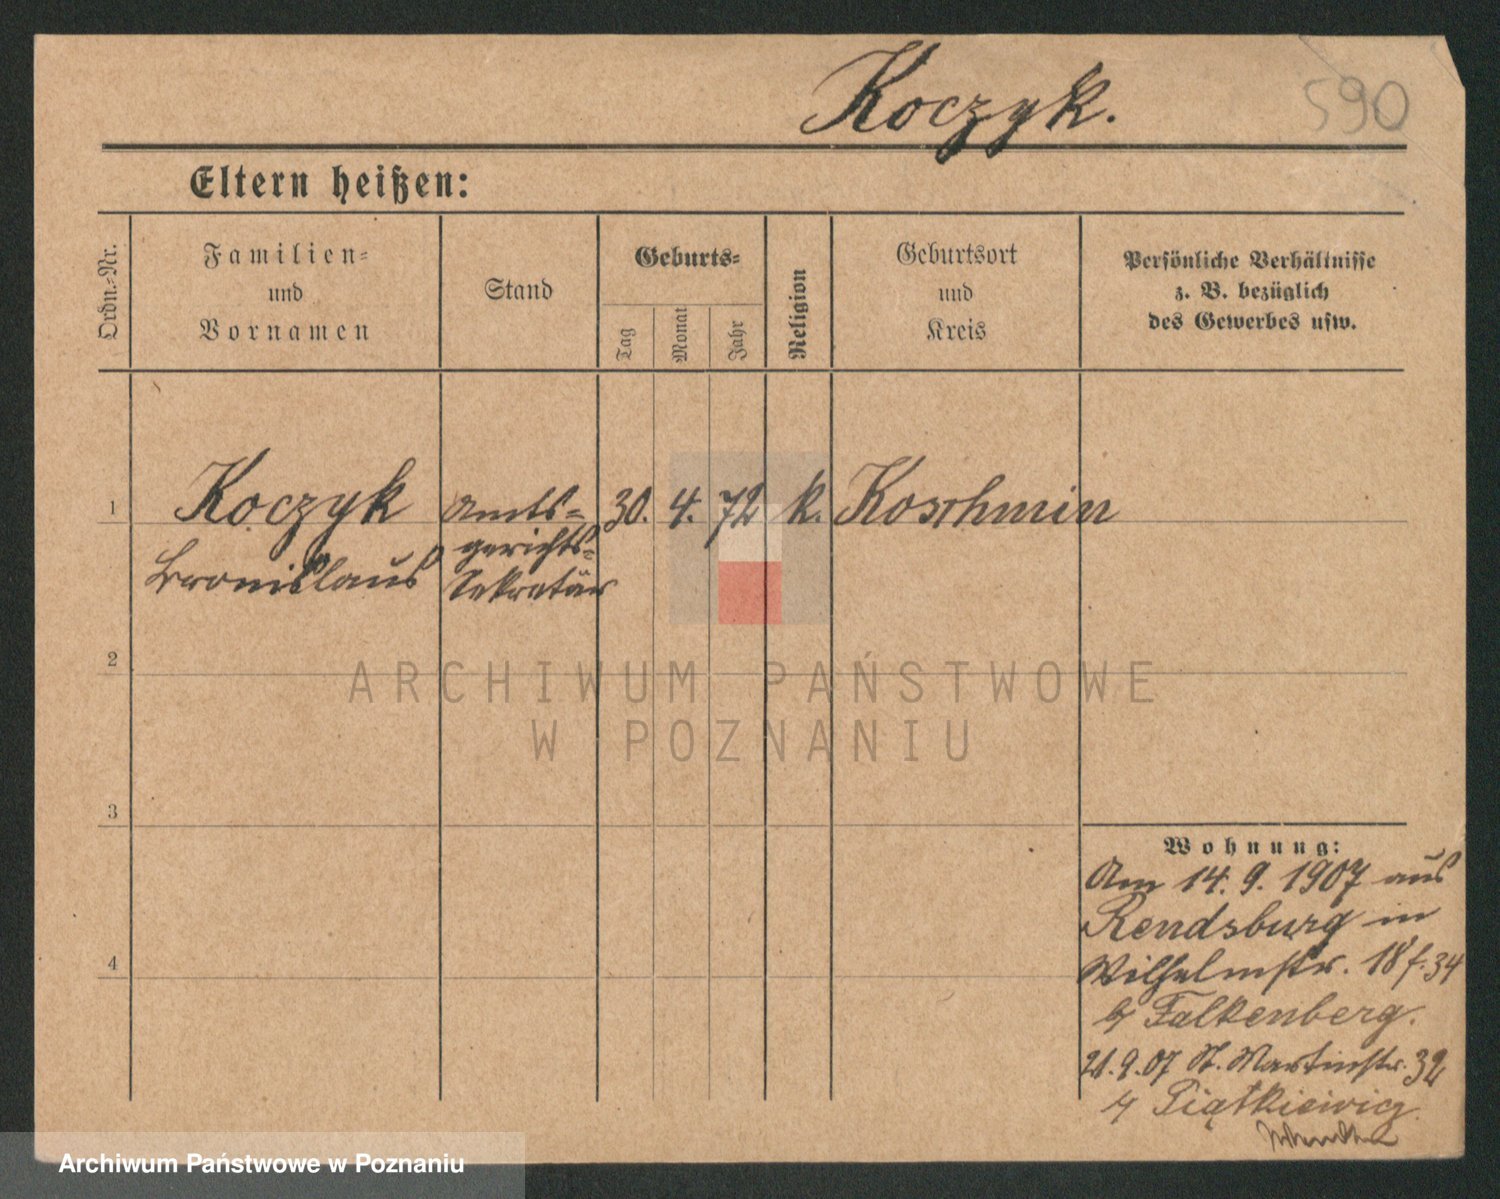 Koczyk.
590
Eltern heißen:
Ordn.-Nr.
Familien-
und
Vornamen
Stand
Geburts-
Tag
Monat
Jahr
Religion
Geburtsort
und
Kreis
Persönliche Verhältnisse
z. B. bezüglich
des Gewerbes usw.
1
Koczyk
Bronislaus
Amts-
gerichts-
Sekretär
30. 4. 72
k.
Koschmin
2
3
4
ARCHIWUM PAŃSTWOWE
W POZNANIU
Wohnung:
Am 14. 9. 1907 aus
Rendsburg in
Wilhelmstr. 18 f. 34
b/ Falkenberg.
21.9.07 St. Martinstr. 32
b/ Piątkiewicz
Archiwum Państwowe w Poznaniu